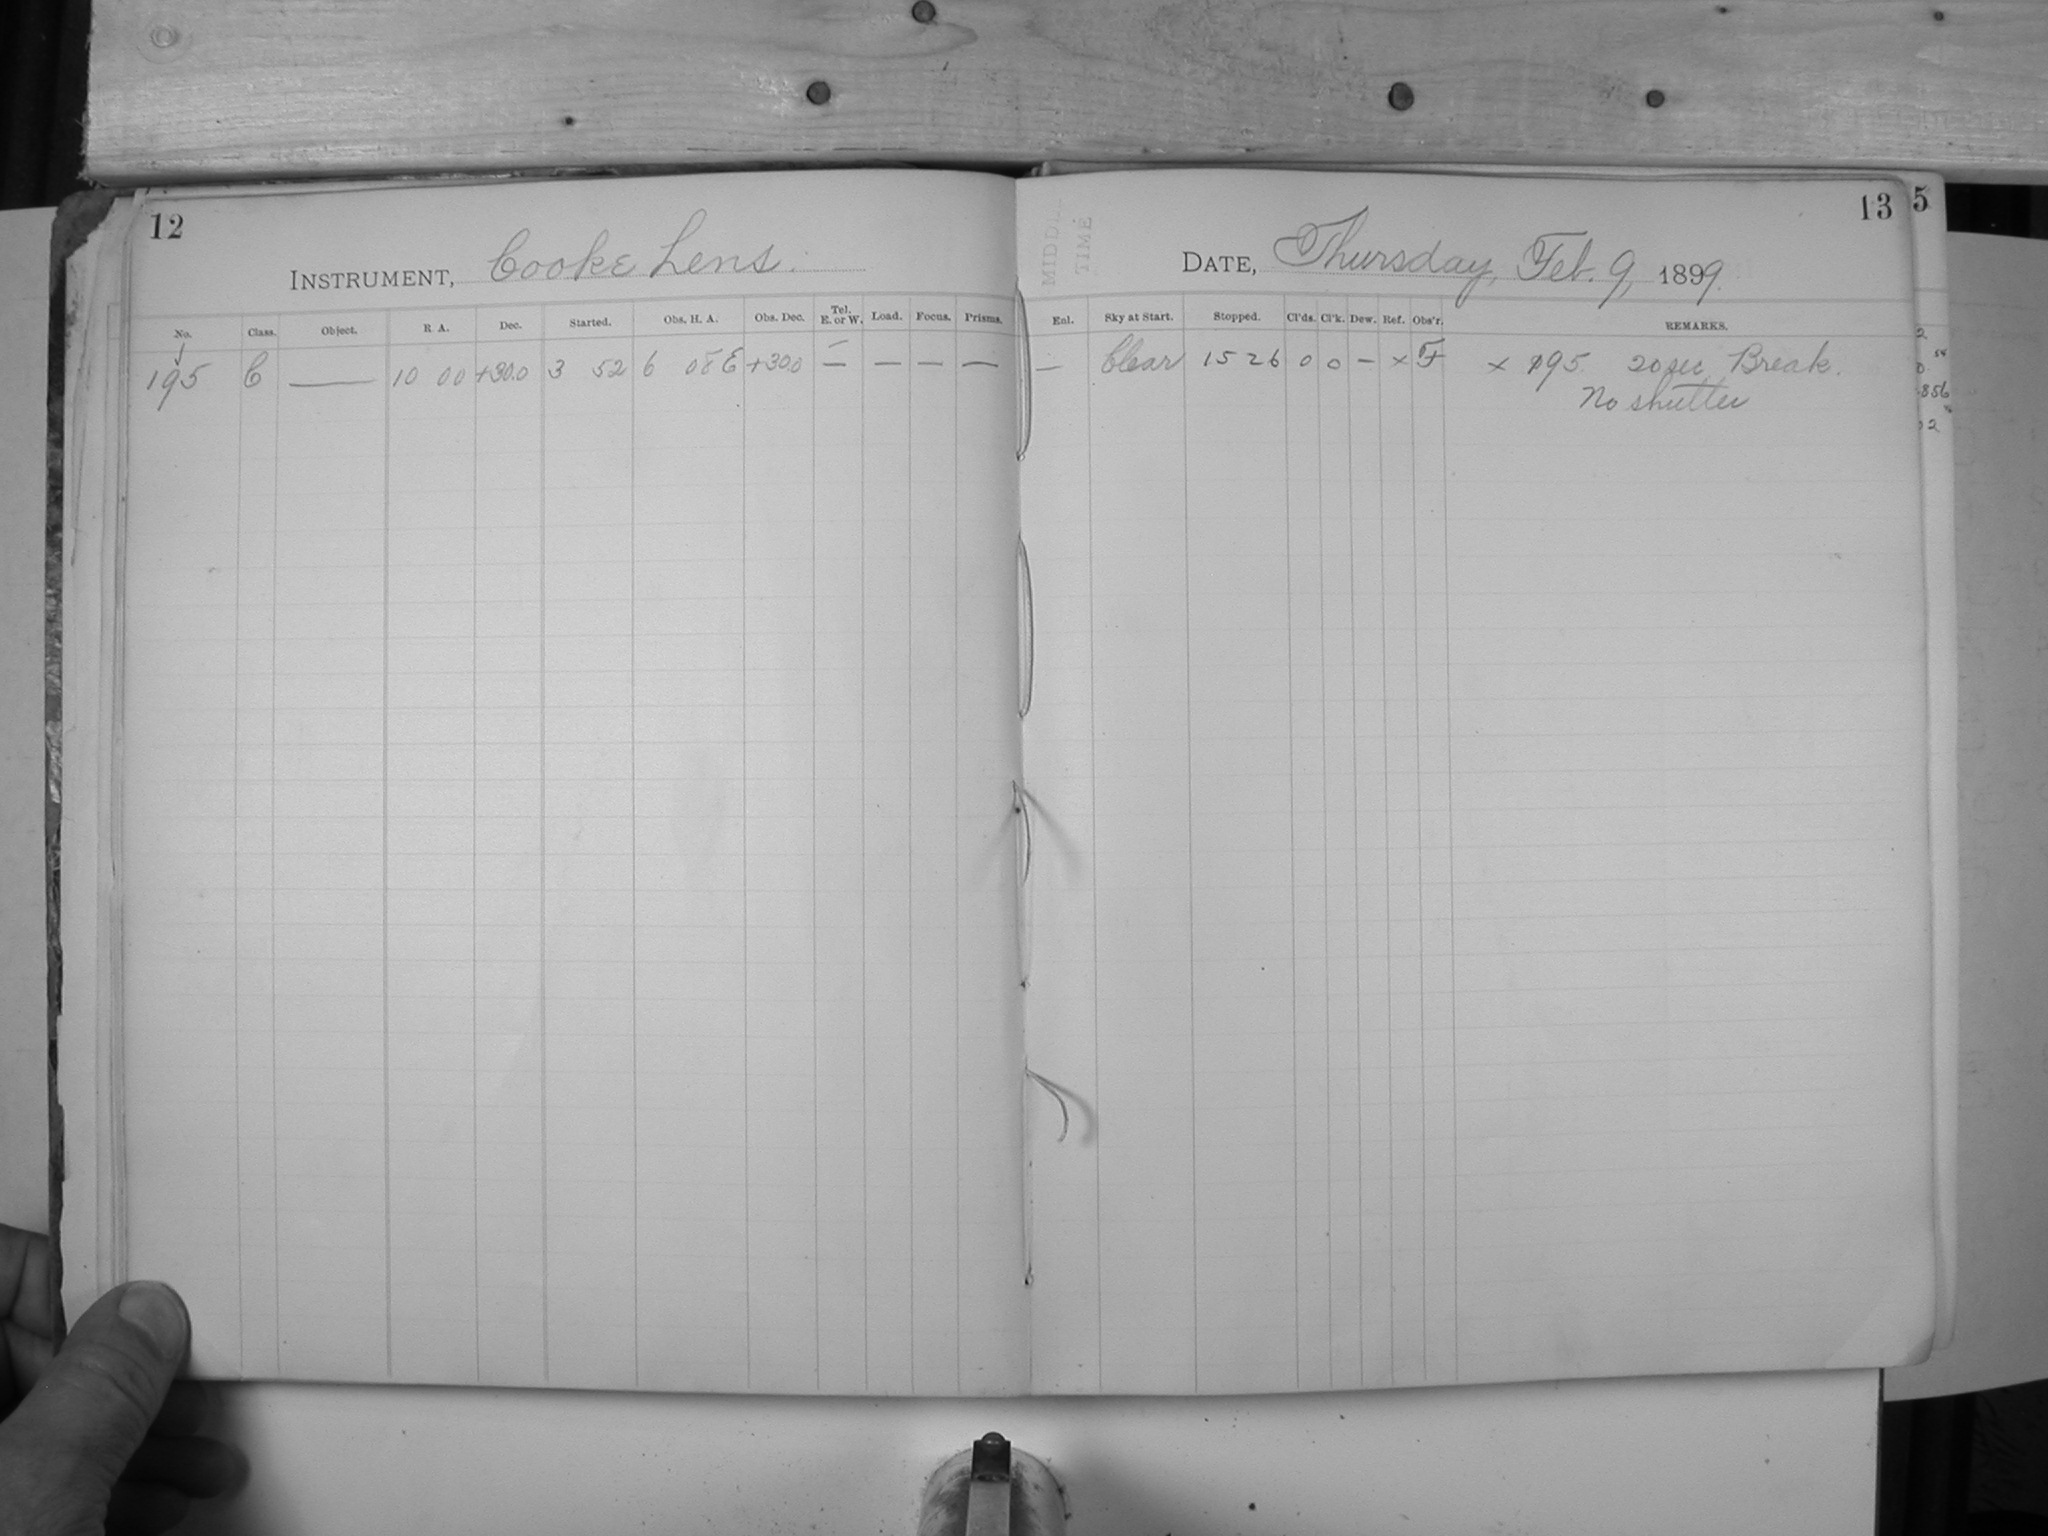 12
INSTRUMENT, Cooke Lens.
No. Class. Object. R A. Dec. Started. Obs. H. A. Obs. Dec. Tel. E. or W. Load. Focus. Prisms.
195 C — 10 00 +30.0 3 52 6 08 E +30.0 — — — —
13
DATE, Thursday, Feb. 9, 1899.
Enl. Sky at Start. Stopped. Cl'ds. Cl'k. Dew. Ref. Obs'r. REMARKS.
— Clear 15 26 0 0 — × F × 195 20 sec Break.
No shutter
MIDD
TIME
5
2
856
02